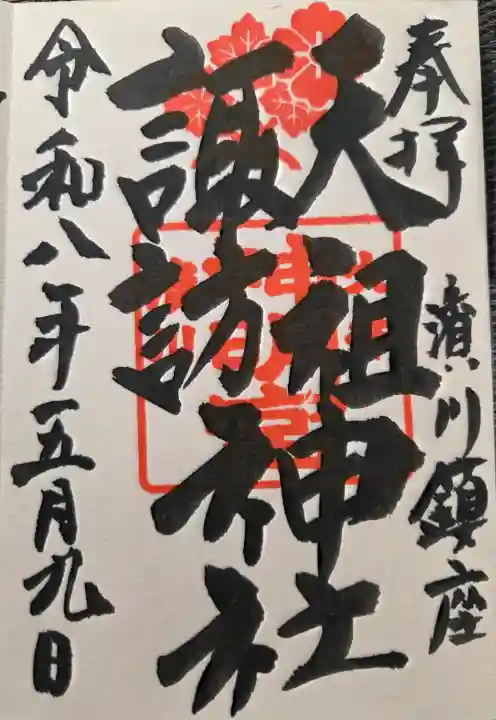 奉拝
濱川鎮座
天祖神社
諏訪神社
令和八年五月九日